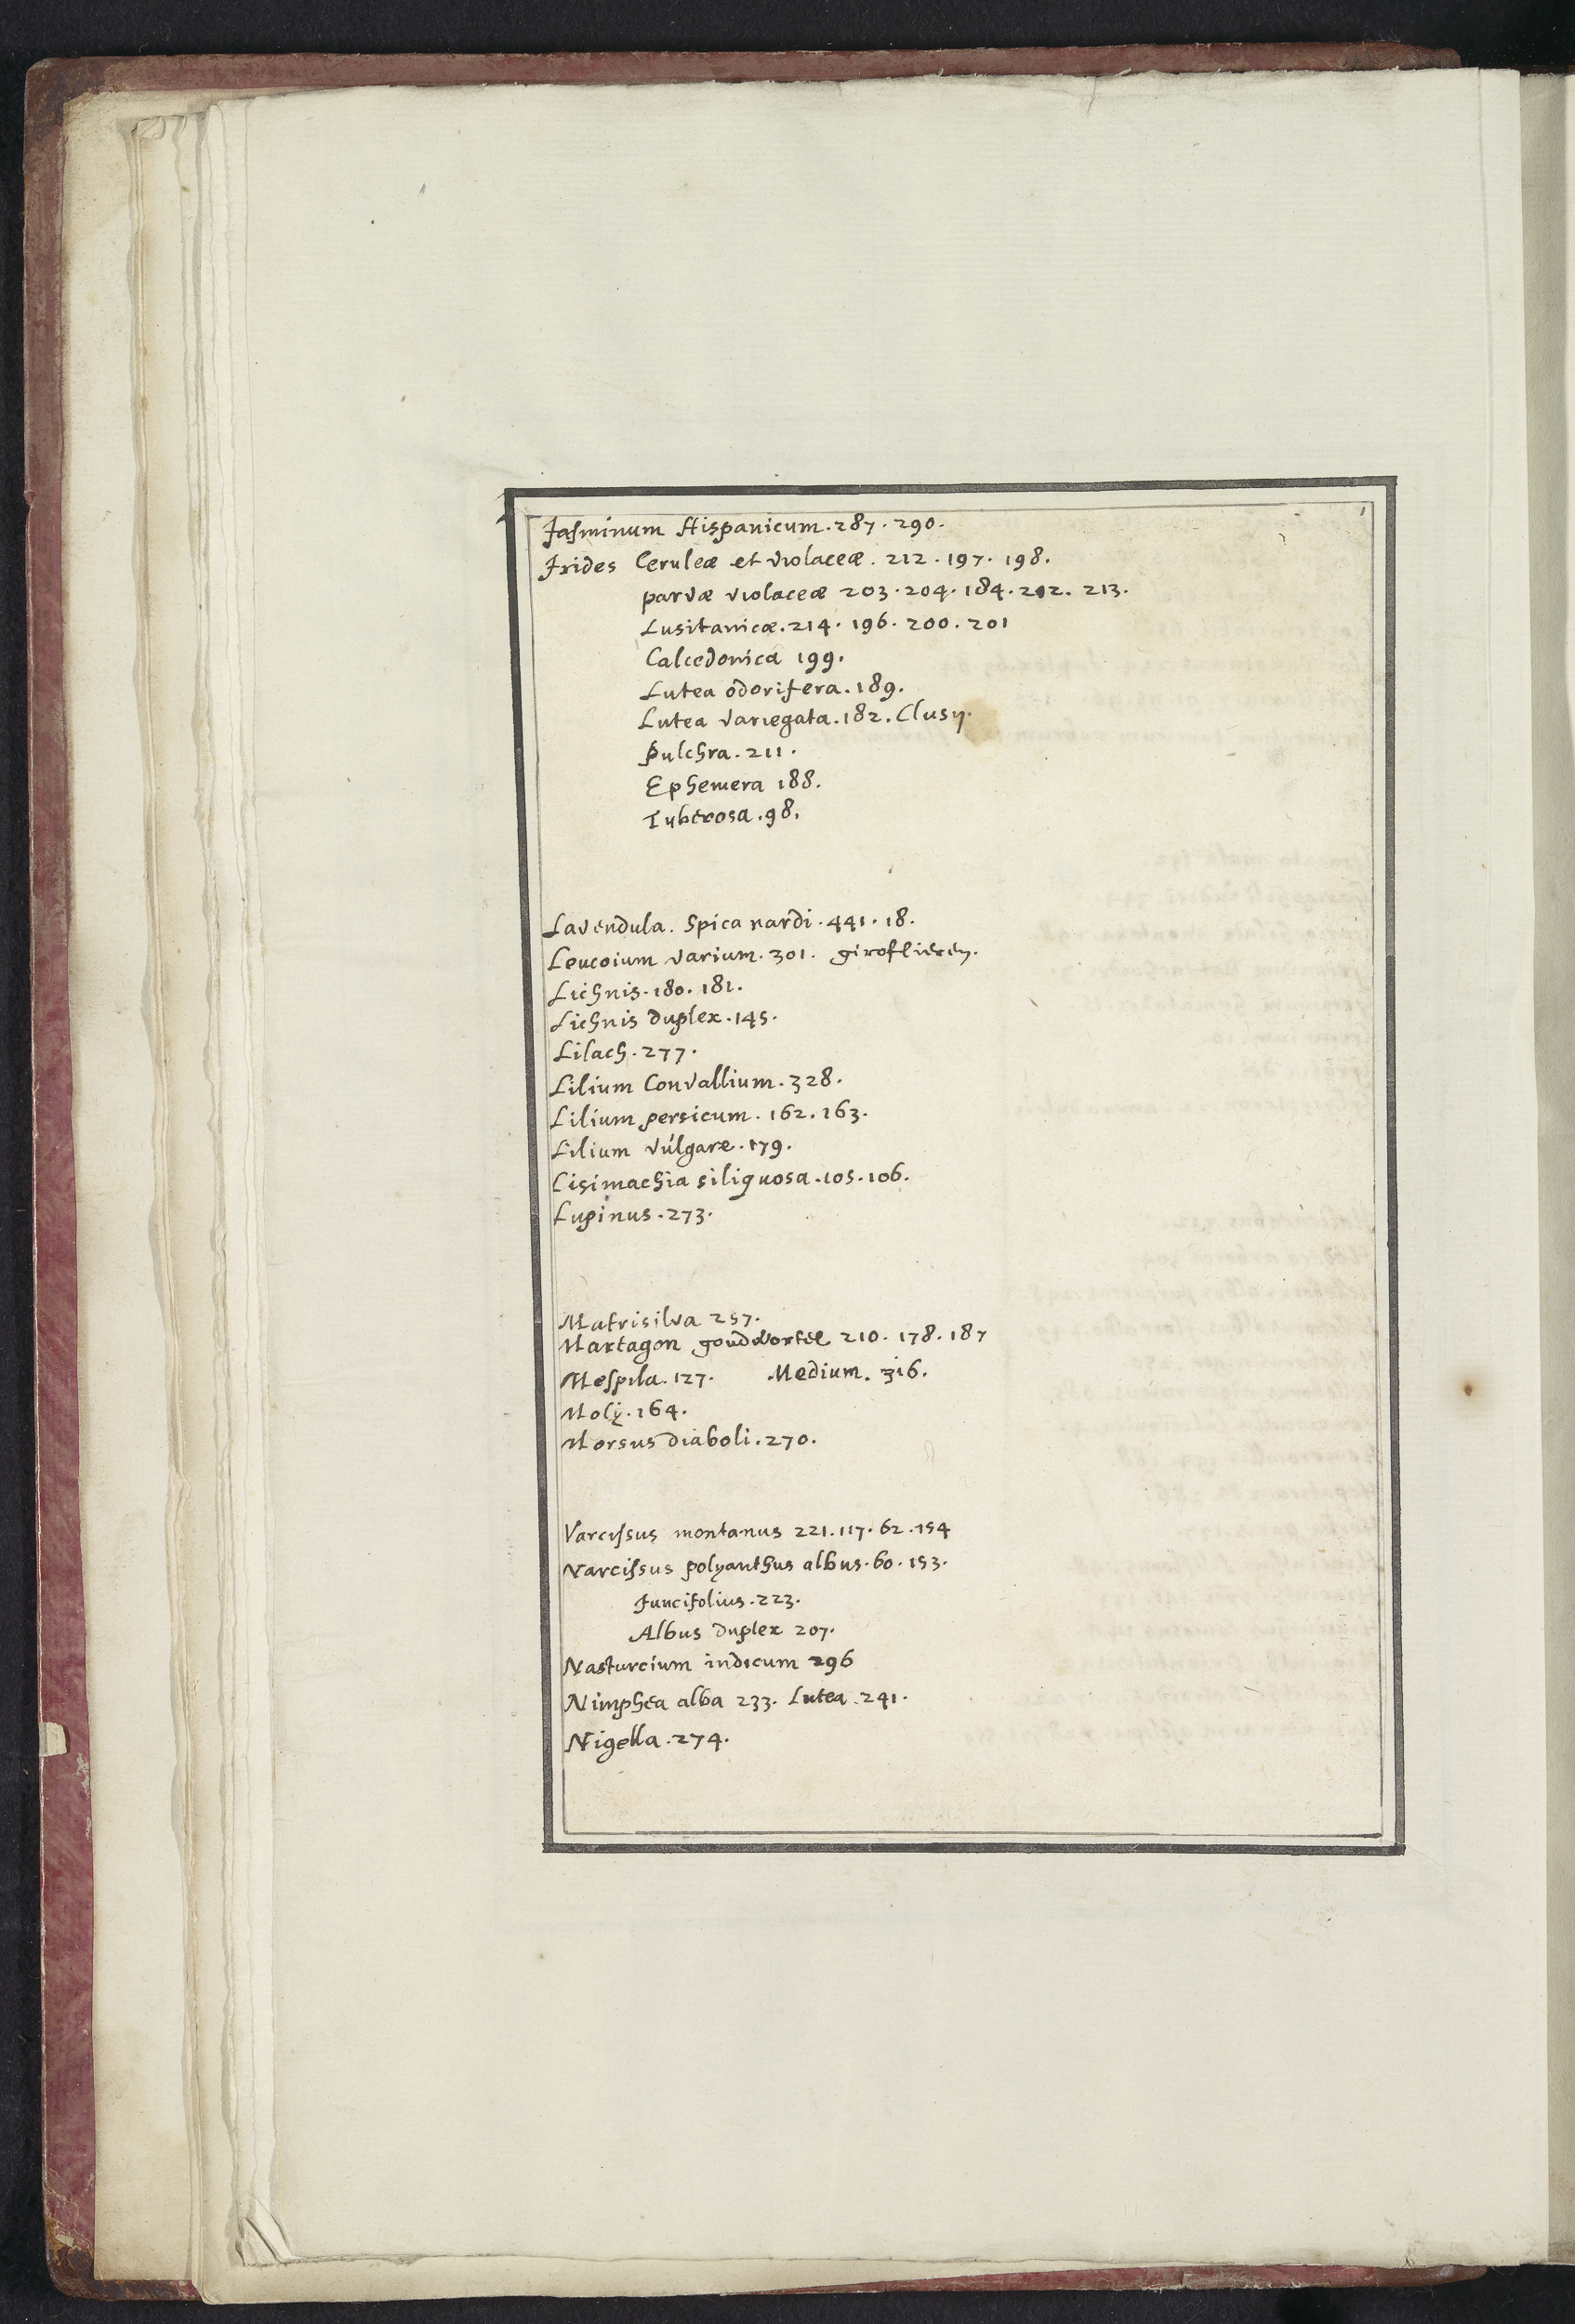 Jasminum Hispanicum. 287. 290.
Irides Ceruleæ et violaceæ. 212. 197. 198.
parvæ violaceæ 203. 204. 184. 202. 213.
Lusitanicæ. 214. 196. 200. 201
Calcedonica 199.
Lutea odorifera. 189.
Lutea variegata. 182. Clusij.
Pulchra. 211.
Ephemera 188.
Tuberosa. 98.
Lavendula. Spica nardi. 441. 18.
Leucoium varium. 301. giroflieren.
Lichnis. 180. 181.
Lichnis duplex. 145.
Lilach. 277.
Lilium Convallium. 328.
Lilium persicum. 162. 163.
Lilium vúlgare. 179.
Lisimachia siliquosa. 105. 106.
Lupinus. 273.
Matrisilva 257.
Martagon goudwortel 210. 178. 187
Mespila. 127. Medium. 316.
Moly. 164.
Morsus diaboli. 270.
Narcissus montanus 221. 117. 62. 154
Narcissus polyanthus albus. 60. 153.
Juncifolius. 223.
Albus duplex 207.
Nasturcium indicum 296
Nimphea alba 233. Lutea. 241.
Nigella. 274.